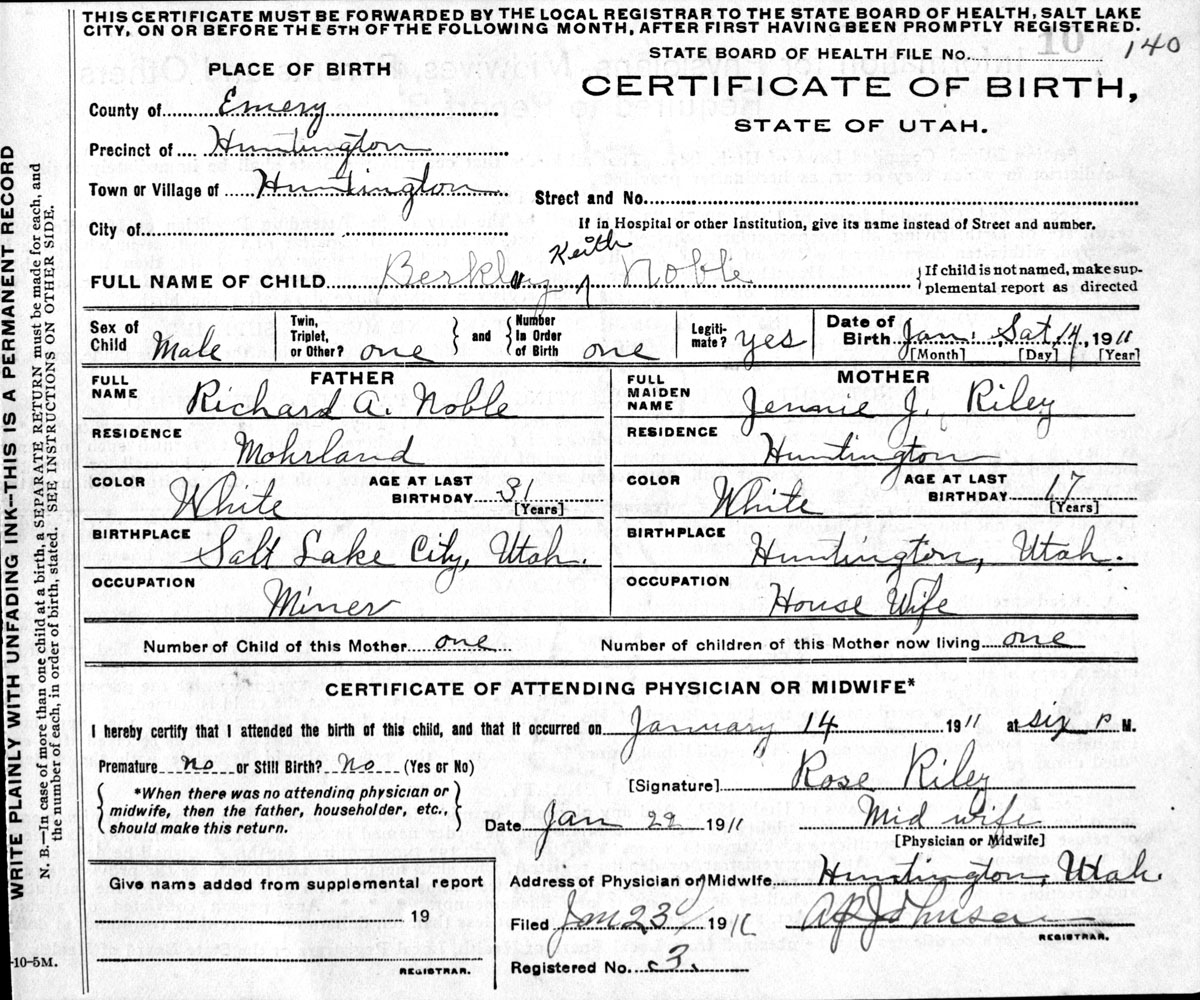 THIS CERTIFICATE MUST BE FORWARDED BY THE LOCAL REGISTRAR TO THE STATE BOARD OF HEALTH, SALT LAKE
CITY, ON OR BEFORE THE 5TH OF THE FOLLOWING MONTH, AFTER FIRST HAVING BEEN PROMPTLY REGISTERED.
10
STATE BOARD OF HEALTH FILE No. 140
PLACE OF BIRTH
CERTIFICATE OF BIRTH,
STATE OF UTAH.
County of Emery
Precinct of Huntington
Town or Village of Huntington
Street and No.
City of
If in Hospital or other Institution, give its name instead of Street and number.
Keith
FULL NAME OF CHILD Berkley ^ Noble
{ If child is not named, make sup-
plemental report as directed
Sex of Child Male
Twin, Triplet, or Other? one } and { Number In Order of Birth one
Legiti-mate? yes
Date of Birth Jan. Sat 14, 1911
[Month] [Day] [Year]
FATHER
FULL NAME Richard A. Noble
MOTHER
FULL MAIDEN NAME Jennie J. Riley
RESIDENCE Mohrland
RESIDENCE Huntington
COLOR White AGE AT LAST BIRTHDAY 31 [Years]
COLOR White AGE AT LAST BIRTHDAY 17 [Years]
BIRTHPLACE Salt Lake City, Utah.
BIRTHPLACE Huntington, Utah.
OCCUPATION Miner
OCCUPATION House Wife
Number of Child of this Mother one
Number of children of this Mother now living one
CERTIFICATE OF ATTENDING PHYSICIAN OR MIDWIFE*
I hereby certify that I attended the birth of this child, and that it occurred on January 14 1911 at six P M.
Premature no or Still Birth? No (Yes or No)
[Signature] Rose Riley
{ *When there was no attending physician or
midwife, then the father, householder, etc.,
should make this return. }
Date Jan 22 1911 Mid wife
[Physician or Midwife]
Give name added from supplemental report
19
REGISTRAR.
Address of Physician or Midwife Huntington, Utah.
Filed Jan 23 1911 Johnson
REGISTRAR.
Registered No. 3
-10-5M.
WRITE PLAINLY WITH UNFADING INK—THIS IS A PERMANENT RECORD
N. B.—In case of more than one child at a birth, a SEPARATE RETURN must be made for each, and
the number of each, in order of birth, stated. SEE INSTRUCTIONS ON OTHER SIDE.